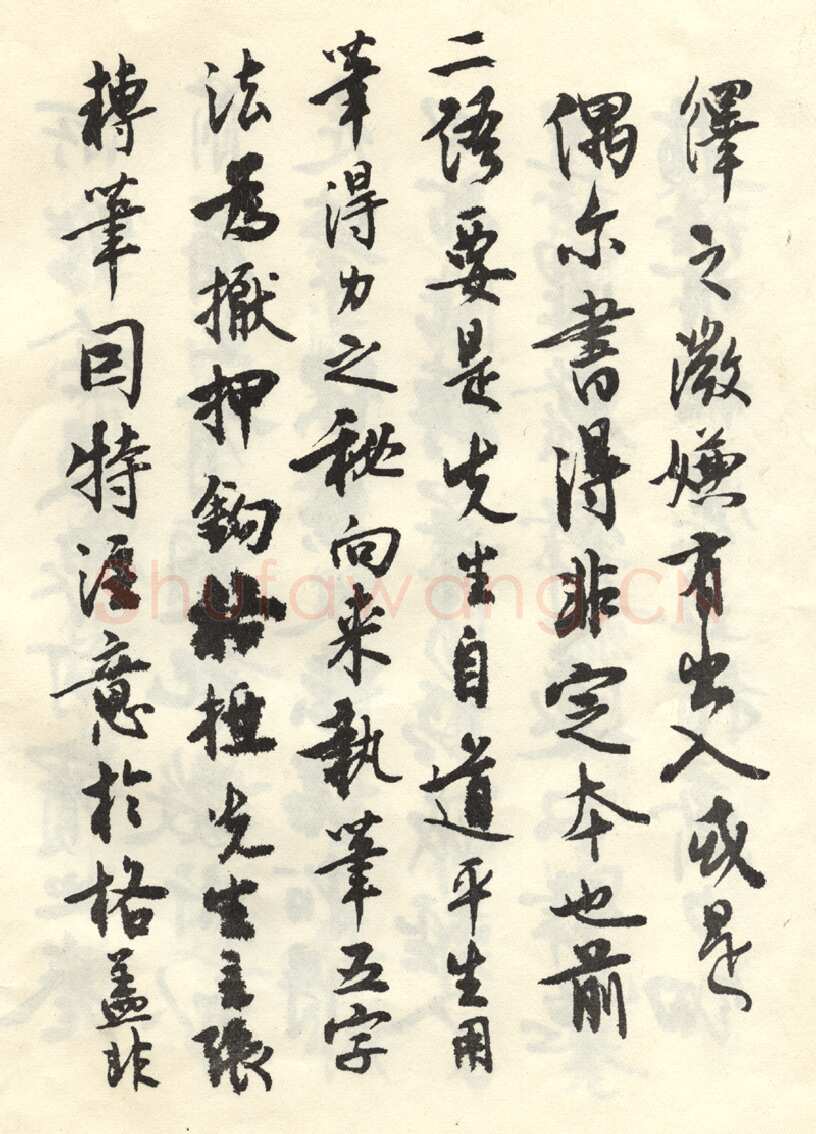 繹之微嫌有出入或是
偶尔書得非定本也前
二語要是先生自道平生用
筆得力之秘向来執筆五字
法為擫押鉤格抵先生主張
轉筆因特注意於格盖非
Shufawang.CN